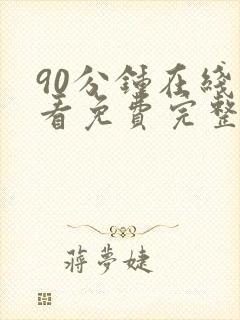 90分鍾在綫
看免費完整
蔣夢婕